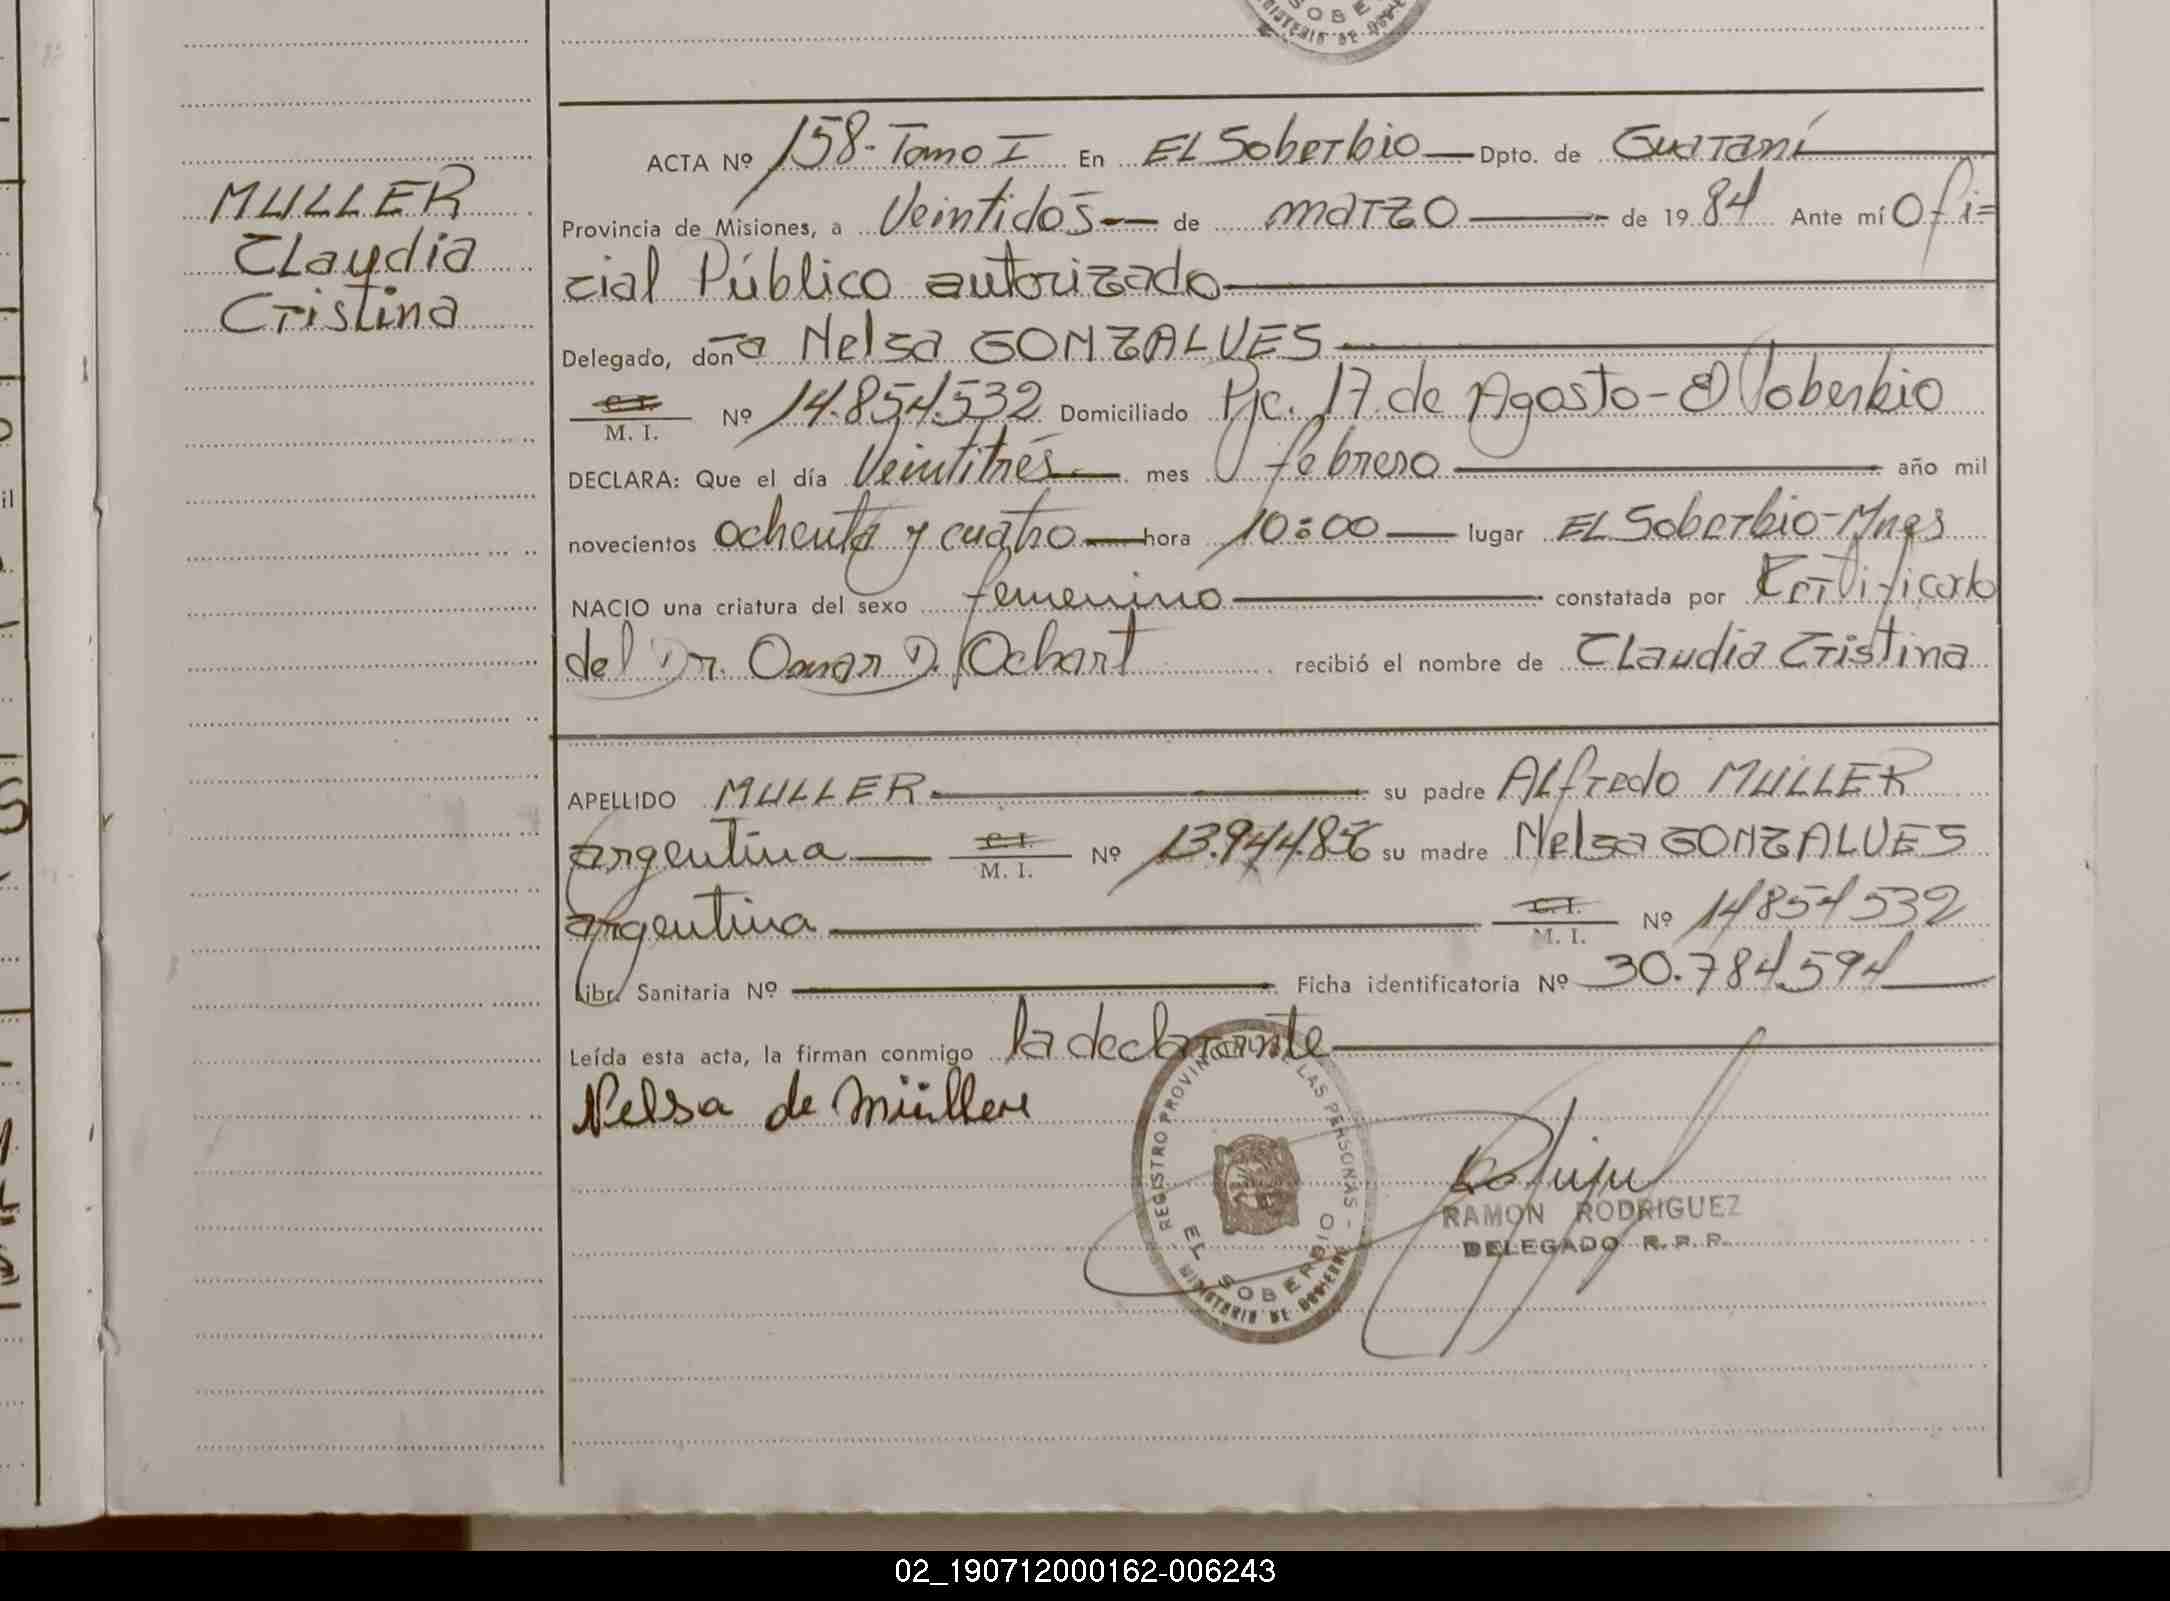 SOBE
MULLER
Claudia
Cristina
ACTA Nº 158-Tomo I En El Soberbio Dpto. de Guaraní
Provincia de Misiones, a Veintidós de marzo de 1984 Ante mí Ofi=
cial Público autorizado
Delegado, doña Nelsa GONZALVES
C. I. M. I. Nº 14.854.532 Domiciliado Pje. 17 de Agosto - El Soberbio
DECLARA: Que el día Veintitrés mes febrero año mil
novecientos ochenta y cuatro hora 10:00 lugar El Soberbio-Mnes
NACIO una criatura del sexo femenino constatada por Certificado
del Dr. Omar D. Ochart recibió el nombre de Claudia Cristina
APELLIDO MULLER su padre Alfredo MULLER
argentina C. I. M. I. Nº 13.944.856 su madre Nelsa GONZALVES
argentina C. I. M. I. Nº 14854532
Libr. Sanitaria Nº Ficha identificatoria Nº 30.784.594
Leída esta acta, la firman conmigo la declarante
Nelsa de Müller
REGISTRO PROVINCIAL DE LAS PERSONAS -
EL SOBERBIO
MINISTERIO DE GOBIERNO
RAMON RODRIGUEZ
DELEGADO R. P. P.
02_190712000162-006243